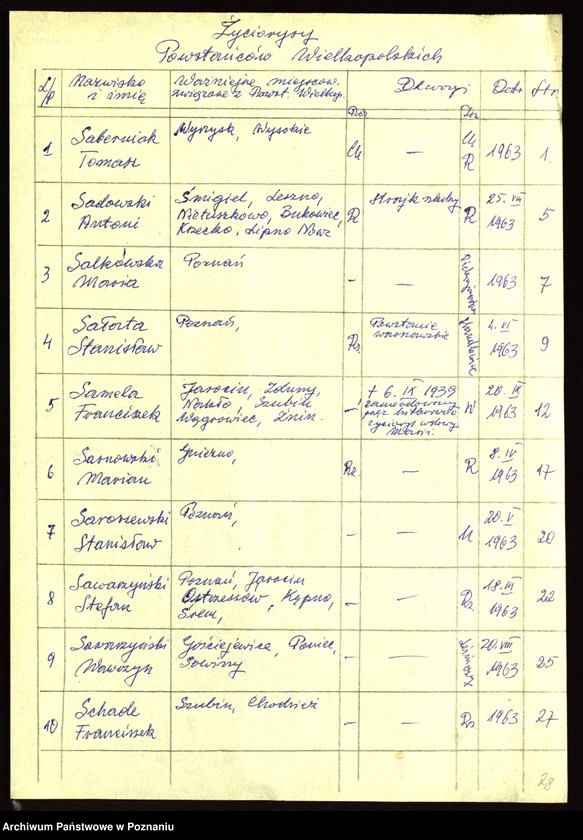 Życiorysy
Powstańców Wielkopolskich
L/p Nazwisko i imię Ważniejsze miejscow. związane z Powst. Wielkop. Data Str.
1 Saberniak Tomasz Wyrzysk, Wysokie — R 1963 1.
2 Sadowski Antoni Śmigiel, Leszno, Nietuszkowo, Bukowiec, Krzecko, Lipno Nowe R Strajk szkolny R 25. VII 1963 5
3 Salkówska Maria Poznań - — 1963 7
4 Satorta Stanisław Poznań, Powstanie warszawskie 4. VI 1963 9
5 Samela Franciszek Jarocin, Zduny, Nakło, Szubin Wągrowiec, Żnin. — + 6. IX 1939 zamordowany przez hitlerowców życiorys wdowy Marii. W 20. IX 1963 12
6 Sarnowski Marian Gniezno, — R 8. IV 1963 17
7 Saroszewski Stanisław Poznań, - — 20. V 1963 20
8 Sawarzyński Stefan Poznań, Jarocin Ostrzeszów, Kępno, Śrem, - — Rz 18. III 1963 22
9 Sawarzyński Wawrzyn Gościejewice, Poniec, Sowiny - — 20. VIII 1963 25
10 Schade Franciszek Szubin, Chodzież - — Rz 1963 27
28
Archiwum Państwowe w Poznaniu